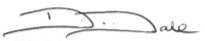 D. Dale